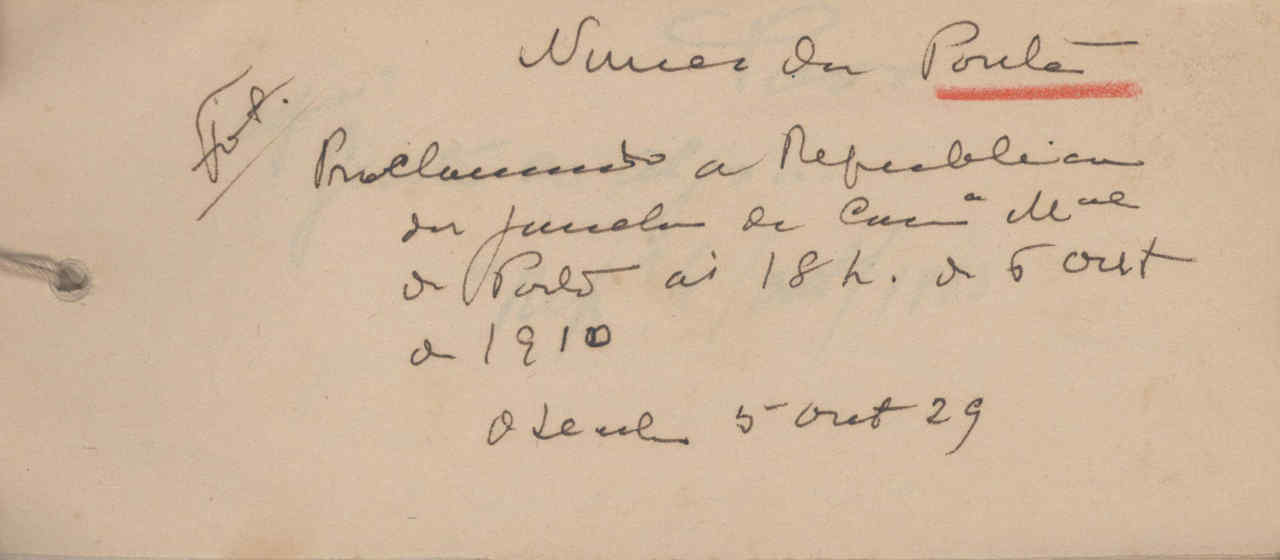 Nunes da Ponte
Fot.
Proclamando a Republica
da janela da Camª Mal
do Porto ás 18 h. de 6 Out
de 1910
O Seculo 5 Out 29